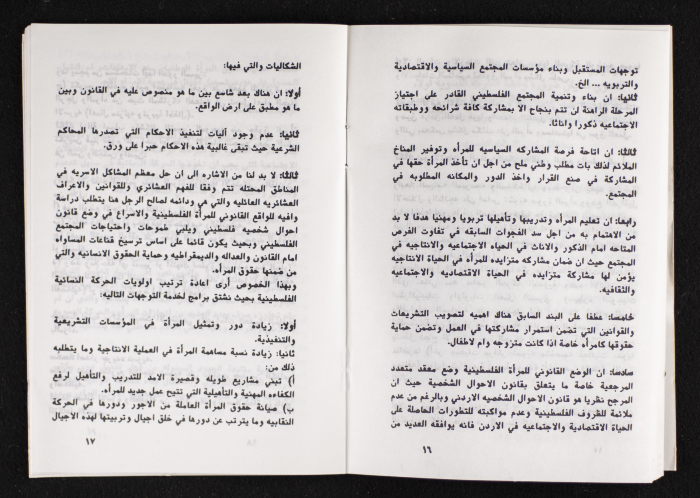 توجهات المستقبل وبناء مؤسسات المجتمع السياسية والاقتصادية
والتربويه ... الخ.
ثانيها: ان بناء وتنمية المجتمع الفلسطيني القادر على اجتياز
المرحلة الراهنة لن تتم بنجاح الا بمشاركة كافة شرائحه وطبقاته
الاجتماعيه ذكورا واناثا.
ثالثا: ان اتاحة فرصة المشاركه السياسيه للمرأه وتوفير المناخ
الملائم لذلك بات مطلب وطني ملح من اجل ان تأخذ المرأة حقها في
المشاركة في صنع القرار واخذ الدور والمكانه المطلوبه في
المجتمع.
رابعا: ان تعليم المرأه وتدريبها وتأهيلها تربويا ومهنيا هدفا لا بد
من الاهتمام به من اجل سد الفجوات السابقه في تفاوت الفرص
المتاحه امام الذكور والاناث في الحياه الاجتماعيه والانتاجيه في
المجتمع حيث ان ضمان مشاركه متزايده للمرأه في الحياة الانتاجيه
يؤمن لها مشاركة متزايده في الحياة الاقتصاديه والاجتماعيه
والثقافيه.
خامسا: عطفا على البند السابق هناك اهميه لتصويب التشريعات
والقوانين التي تضمن استمرار مشاركتها في العمل وتضمن حماية
حقوقها كامرأه خاصة اذا كانت متزوجه وام لاطفال.
سادسا: ان الوضع القانوني للمرأة الفلسطينية وضع معقد متعدد
المرجعية خاصة ما يتعلق بقانون الاحوال الشخصية حيث ان
المرجح نظريا هو قانون الاحوال الشخصيه الاردني وبالرغم من عدم
ملائمة للظروف الفلسطينية وعدم مواكبته للتطورات الحاصلة على
الحياة الاقتصادية والاجتماعيه في الاردن فانه يوافقه العديد من
١٦
الشكاليات والتي فيها:
أولا: ان هناك بعد شاسع بين ما هو منصوص عليه في القانون وبين
ما هو مطبق على ارض الواقع.
ثانيها: عدم وجود آليات لتنفيذ الاحكام التي تصدرها المحاكم
الشرعية حيث تبقى غالبية هذه الاحكام حبرا على ورق.
ثالثا: لا بد لنا من الاشاره الى ان حل معظم المشاكل الاسريه في
المناطق المحتله تتم وفقا للفهم العشائري وللقوانين والاعراف
العشائريه العائليه والتي هي ودائمه لصالح الرجل هنا يتطلب دراسة
وافيه للواقع القانوني للمرأة الفلسطينية والاسراع في وضع قانون
احوال شخصيه فلسطيني ويلبي طموحات واحتياجات المجتمع
الفلسطيني وبحيث يكون قائما على اساس ترسيخ قناعات مساواه
امام القانون والعداله والديمقراطيه وحماية الحقوق الانسانيه والتي
من ضمنها حقوق المرأه.
وبهذا الخصوص أرى اعادة ترتيب اولويات الحركة النسائية
الفلسطينية بحيث نشتق برامج لخدمة التوجهات التاليه:
أولا: زيادة دور وتمثيل المرأة في المؤسسات التشريعية
والتنفيذية.
ثانيا: زيادة نسبة مساهمة المرأة في العملية الانتاجية وما يتطلبه
ذلك من:
أ) تبني مشاريع طويله وقصيرة الامد للتدريب والتأهيل لرفع
الكفاءه المهنية والتأهيلية التي تتيح عمل جديد للمرأه.
ب) صيانة حقوق المرأة العاملة من الاجور ودورها في الحركة
النقابيه وما يترتب عن دورها في خلق اجيال وتربيتها لهذه الاجيال
١٧